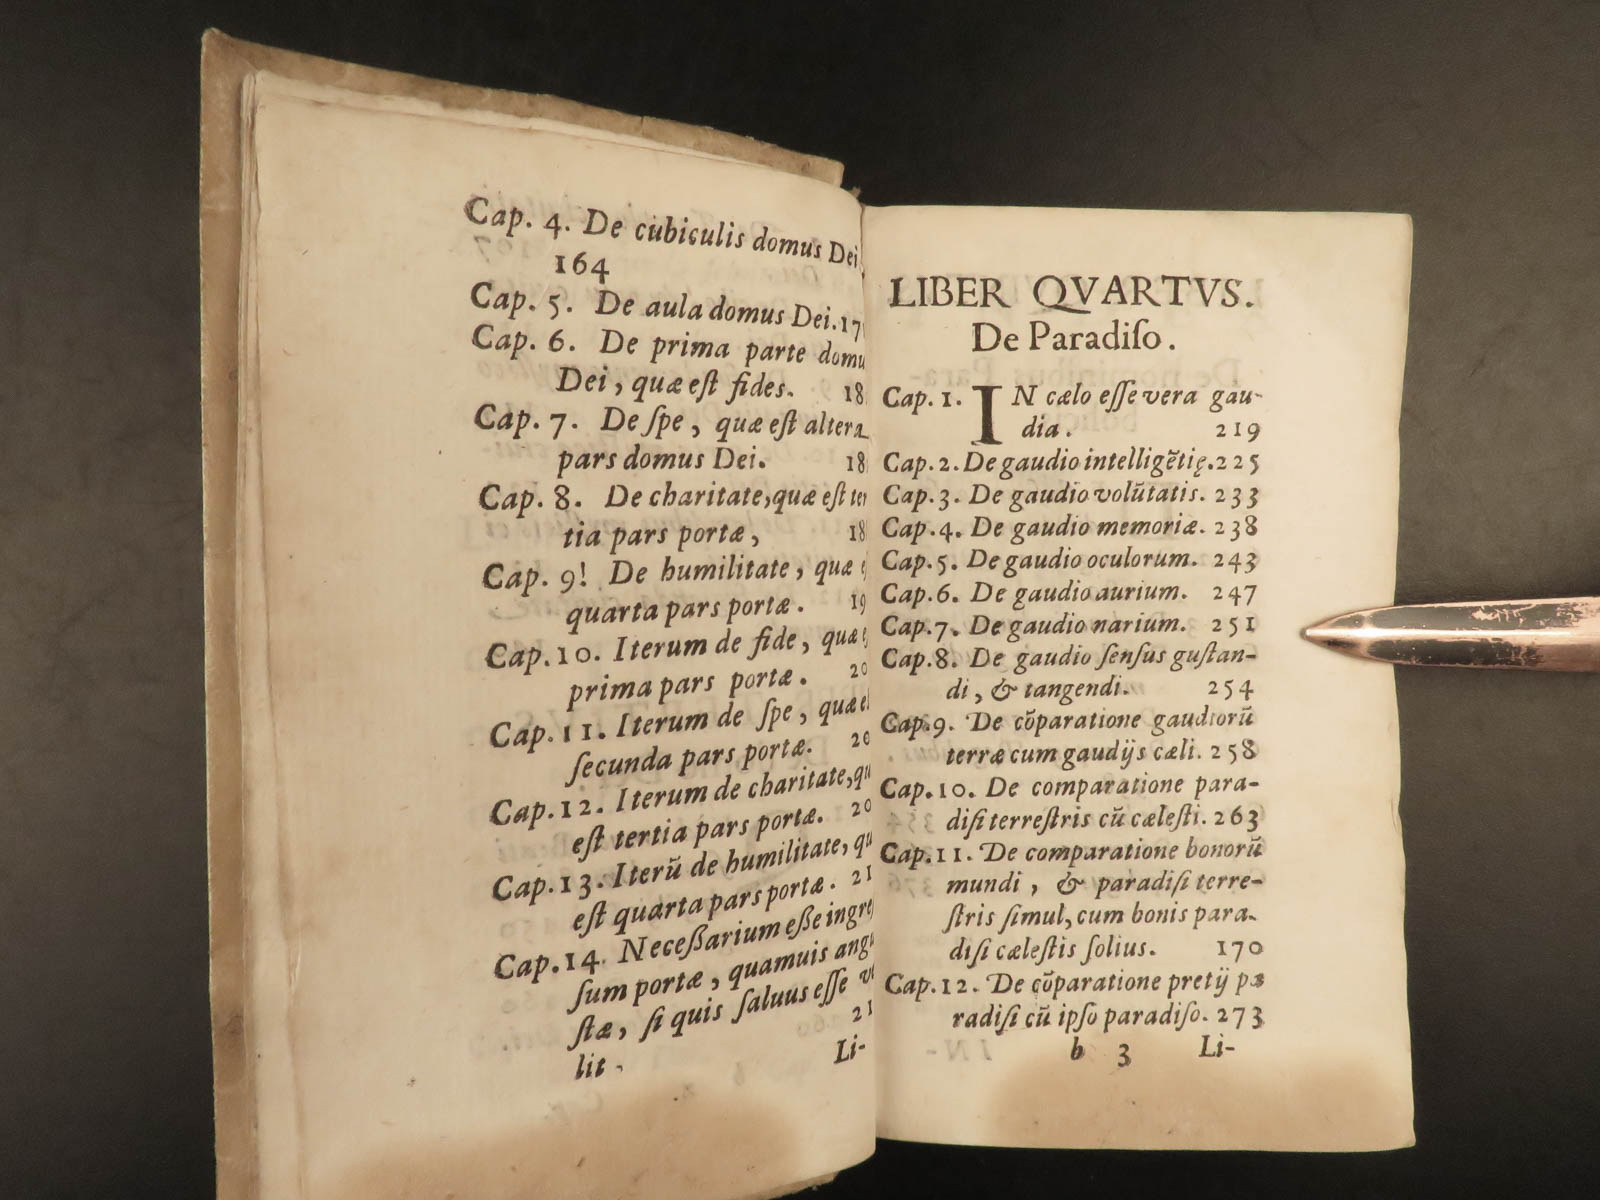 Cap. 4. De cubiculis domus Dei
164
Cap. 5. De aula domus Dei. 17
Cap. 6. De prima parte domu
Dei, quæ eſt fides. 18
Cap. 7. De ſpe, quæ eſt altera
pars domus Dei. 18
Cap. 8. De charitate, quæ eſt ter
tia pars portæ, 18
Cap. 9! De humilitate, quæ e
quarta pars portæ. 19
Cap. 10. Iterum de fide, quæ e
prima pars portæ. 20
Cap. 11. Iterum de ſpe, quæ eſ
ſecunda pars portæ. 20
Cap. 12. Iterum de charitate, qu
eſt tertia pars portæ. 20
Cap. 13. Iterū de humilitate, qu
eſt quarta pars portæ. 21
Cap. 14. Neceßarium eße ingre
ſum portæ, quamuis angu
ſtæ, ſi quis ſaluus eſſe ve
lit. 21
Li-
LIBER QVARTVS.
De Paradiſo.
Cap. 1. IN cælo eſſe vera gau-
dia. 219
Cap. 2. De gaudio intelligētię. 225
Cap. 3. De gaudio volūtatis. 233
Cap. 4. De gaudio memoriæ. 238
Cap. 5. De gaudio oculorum. 243
Cap. 6. De gaudio aurium. 247
Cap. 7. De gaudio narium. 251
Cap. 8. De gaudio ſenſus guſtan-
di, & tangendi. 254
Cap. 9. De cōparatione gaudiorū
terræ cum gaudijs cæli. 258
Cap. 10. De comparatione para-
diſi terreſtris cū cæleſti. 263
Cap. 11. De comparatione bonorū
mundi, & paradiſi terre-
ſtris ſimul, cum bonis para-
diſi cæleſtis ſolius. 170
Cap. 12. De cōparatione pretij pa
radiſi cū ipſo paradiſo. 273
b 3 Li-